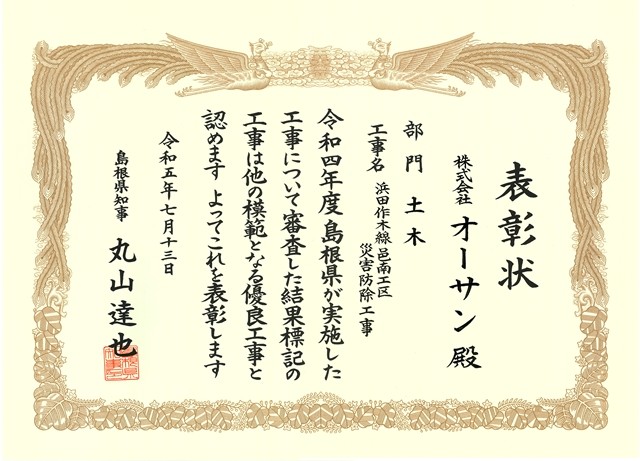 表彰状
株式会社 オーサン 殿
部門 土木
工事名 浜田作木線 邑南工区
災害防除工事
令和四年度島根県が実施した
工事について審査した結果標記の
工事は他の模範となる優良工事と
認めます よってこれを表彰します
令和五年七月十三日
島根県知事 丸山達也